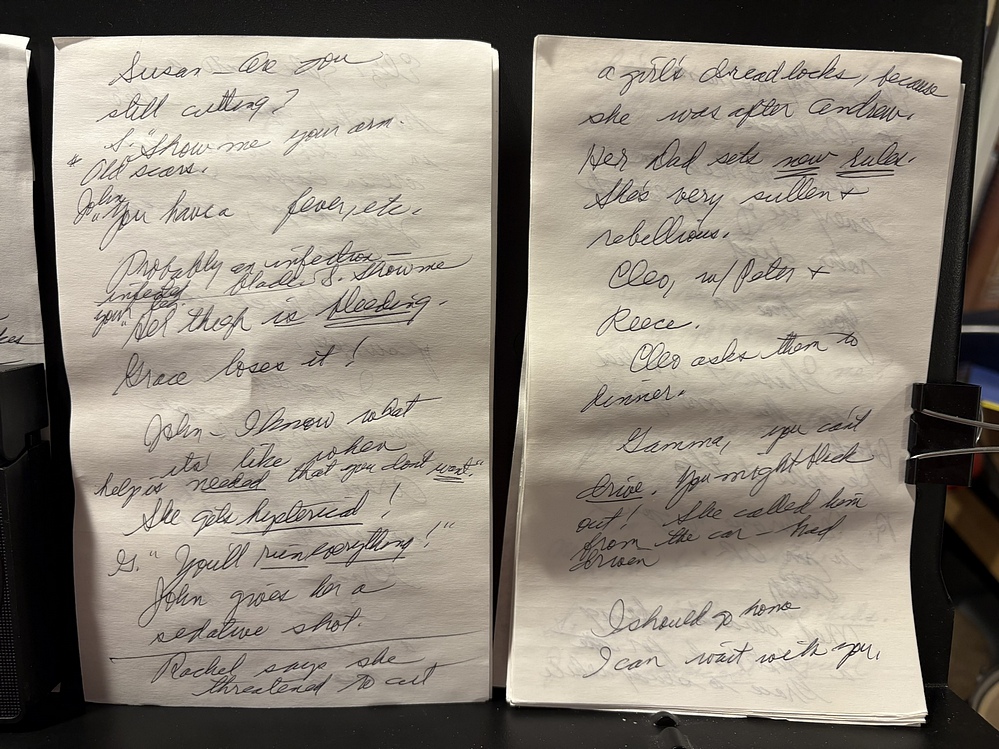 Susan - Are you
still cutting?
S. "Show me your arm.
* Old scars.
John "You have a fever, etc.
Probably an infection
infected blade. S. Show me
your leg.
"Her thigh is bleeding.
Grace loses it!
John - I know what
its' like when
help is needed that you don't want."
She gets hysterical!
G. "You'll ruin everything!"
John gives her a
sedative shot.
Rachel says she
threatened to cut
a girl's dreadlocks, because
she was after Andrew.
Her Dad sets new rules.
She's very sullen +
rebellious.
Cleo, w/ Peter +
Reece.
Cleo asks them to
dinner.
Gamma, you can't
drive. You might black
out! She called him
from the car - had
driven
I should go home
I can wait with you.